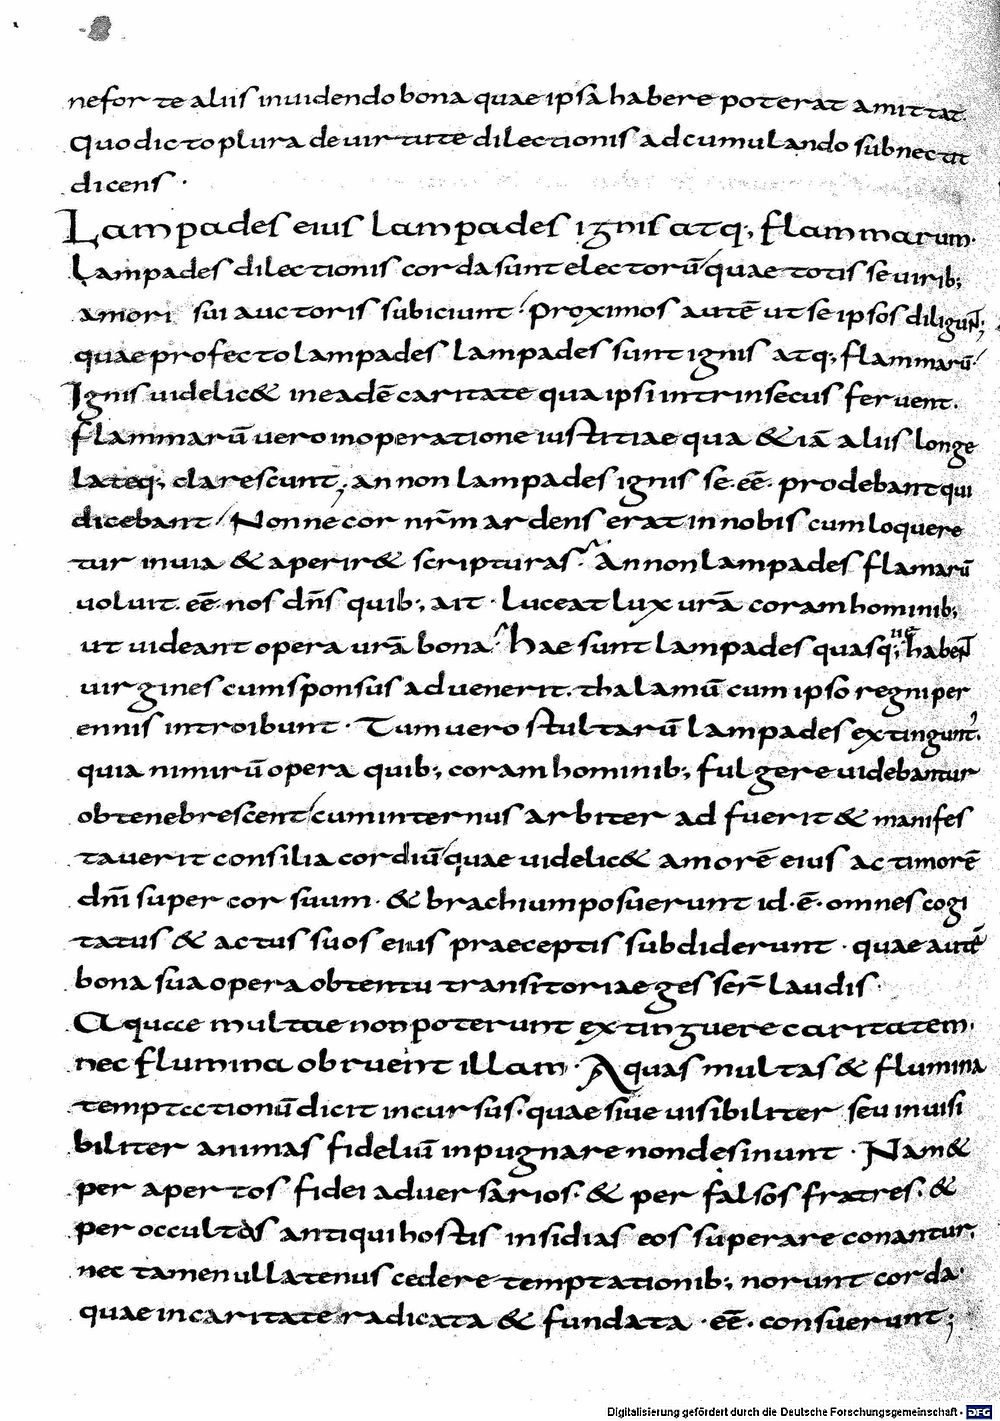 ne forte aliis inuidendo bona quae ipsa habere poterat amittat.
Quo dicto plura de uirtute dilectionis ad cumulando subnectit
dicens ·
Lampades eius lampades ignis atq; flammarum·
Lampades dilectionis corda sunt electorū quae totis se uirib;
amori sui auctoris subiciunt· Proximos autē ut se ipsos diligun̄;
quae profecto lampades lampades sunt ignis atq; flammarū·
Ignis uidelic& in eadē caritate qua ipsi intrinsecus feruent.
flammarū uero in operatione iustitiae qua &iā aliis longe
lateq; clarescunt; an non lampades ignis se·eē· prodebant qui
dicebant· Nonne cor nr̄m ardens erat in nobis cum loquere
tur in uia & aperir& scripturas· An non lampades flamarū
uoluit·eē·nos dn̄s quib; ait· Luceat lux ur̄a coram hominib;
ut uideant opera ur̄a bona· Hae sunt lampades quas q;ne haben̄
uirgines cum sponsus aduenerit· thalamū cum ipso regni per
ennis introibunt· Tum uero stultarū lampades extingunt'.
quia nimirū opera quib; coram hominib; fulgere uidebantur
obtenebrescent cum internus arbiter adfuerit & manifes
tauerit consilia cordiū quae uidelic& amorē eius ac timorē
dn̄i super cor suum· & brachium posuerunt id·ē· omnes cogi
tatus & actus suos eius praeceptis subdiderunt· quae autē
bona sua opera obtentu transitoriae gesser̄ laudis·
Aquae multae non poterunt extinguere caritatem·
nec flumina obruent illam· Aquas multas & flumina
temptationū dicit incursus· quae siue uisibiliter seu inuisi
biliter animas fideliū inpugnare non desinunt· Nam &
per apertos fidei aduersarios· & per falsos fratres· &
per occultas antiqui hostis insidias eos superare conantur.
nec tamen ullatenus cedere temptationib; norunt corda·
quae in caritate radicata & fundata ·eē· consuerunt;
Digitalisierung gefördert durch die Deutsche Forschungsgemeinschaft - DFG